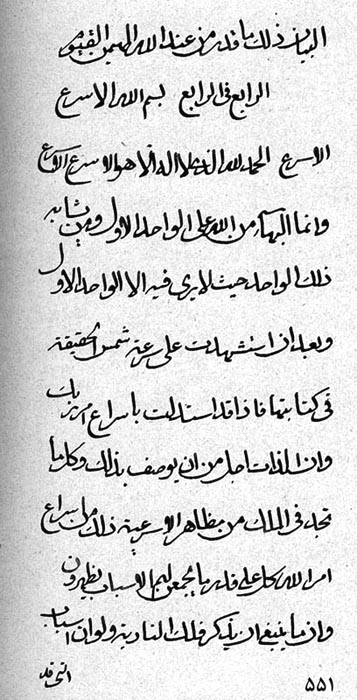 البيان ذلك ما قدر من عند الله المهيمن القيوم
الرابع فى الرابع بسم الله الاسرع
الاسرع الحمد لله الذى لا اله الا هو الاسرع الاسرع
وانما البهاء من الله على الواحد الاول ومن يشابه
ذلك الواحد حيث لا يرى فيه الا الواحد الاول
وبعد ان استشهدت على سرعة شمس الحقيقة
فى كتابتها فاذا قد استدللت باسراع امر ربك
وان الذات اجل من ان يوصف بذلك وكل ما
تجد فى الملك من مظاهر الاسرعية ذلك من اسراع
امر الله كل على قدر ما يجمعن اليهم الاسباب يظهرون
وان ما ينبغى ان يذكر فلك النارية ولو ان اسباب
التى قد
٥٥١